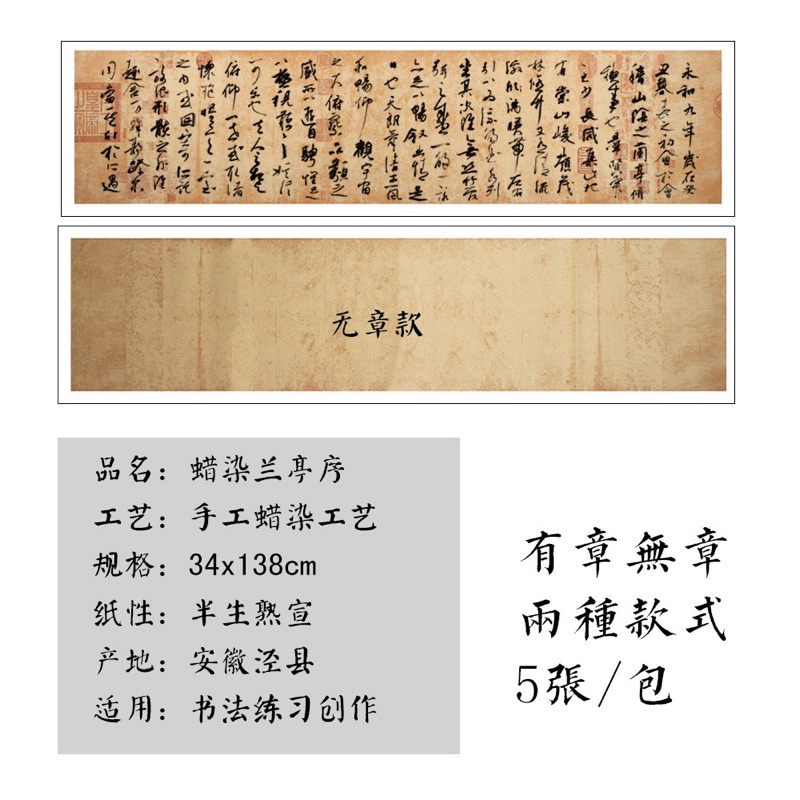 永和九年歲在癸
丑暮春之初會於會
稽山陰之蘭亭脩
稧事也羣賢畢
至少長咸集此地
有崇山峻嶺茂
林脩竹又有清流
激湍暎帶左右
引以為流觴曲水列
坐其次雖無絲竹管
弦之盛一觴一詠
亦足以暢敘幽情是
日也天朗氣清惠風
和暢仰觀宇宙
之大俯察品類之
盛所以遊目騁懷足
以極視聽之娛信
可樂也夫人之相與
俯仰一世或取諸
懷抱悟言一室
之內或因寄所託
放浪形骸之外雖
趣舍萬殊靜躁不
同當其欣於所遇
无章款
品名：蜡染兰亭序
工艺：手工蜡染工艺
规格：34x138cm
纸性：半生熟宣
产地：安徽泾县
适用：书法练习创作
有章無章
兩種款式
5張/包